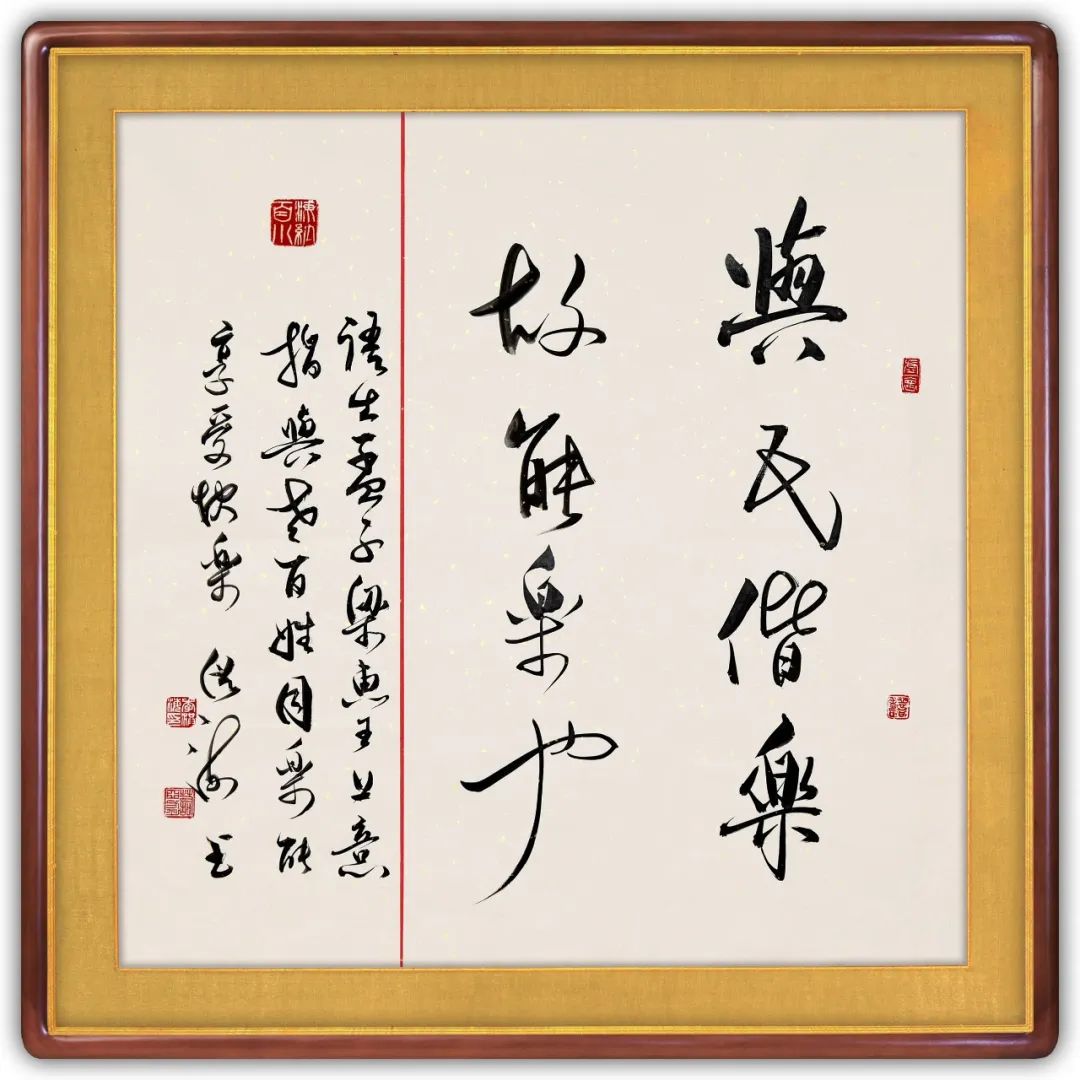 與民偕樂
故能樂也
語出孟子梁惠王上意
指與老百姓同樂能
享受快樂 書